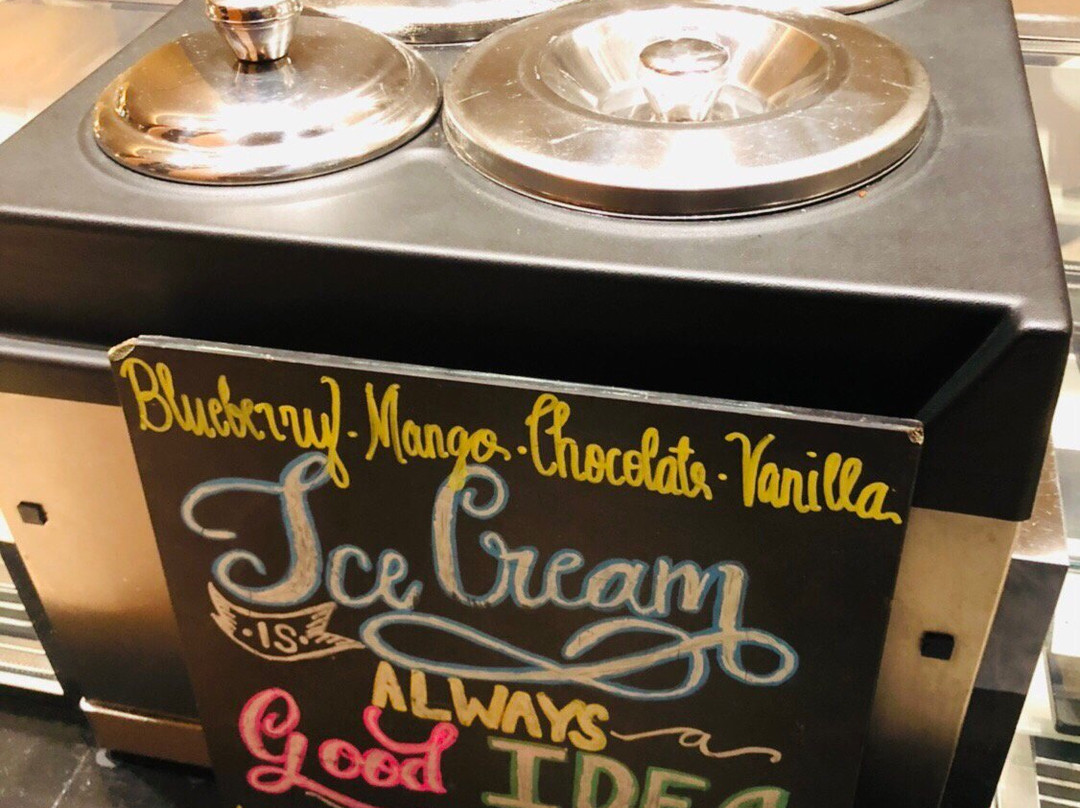 Blueberry · Mango · Chocolate · Vanilla
Ice Cream
· IS ·
ALWAYS a
Good IDEA